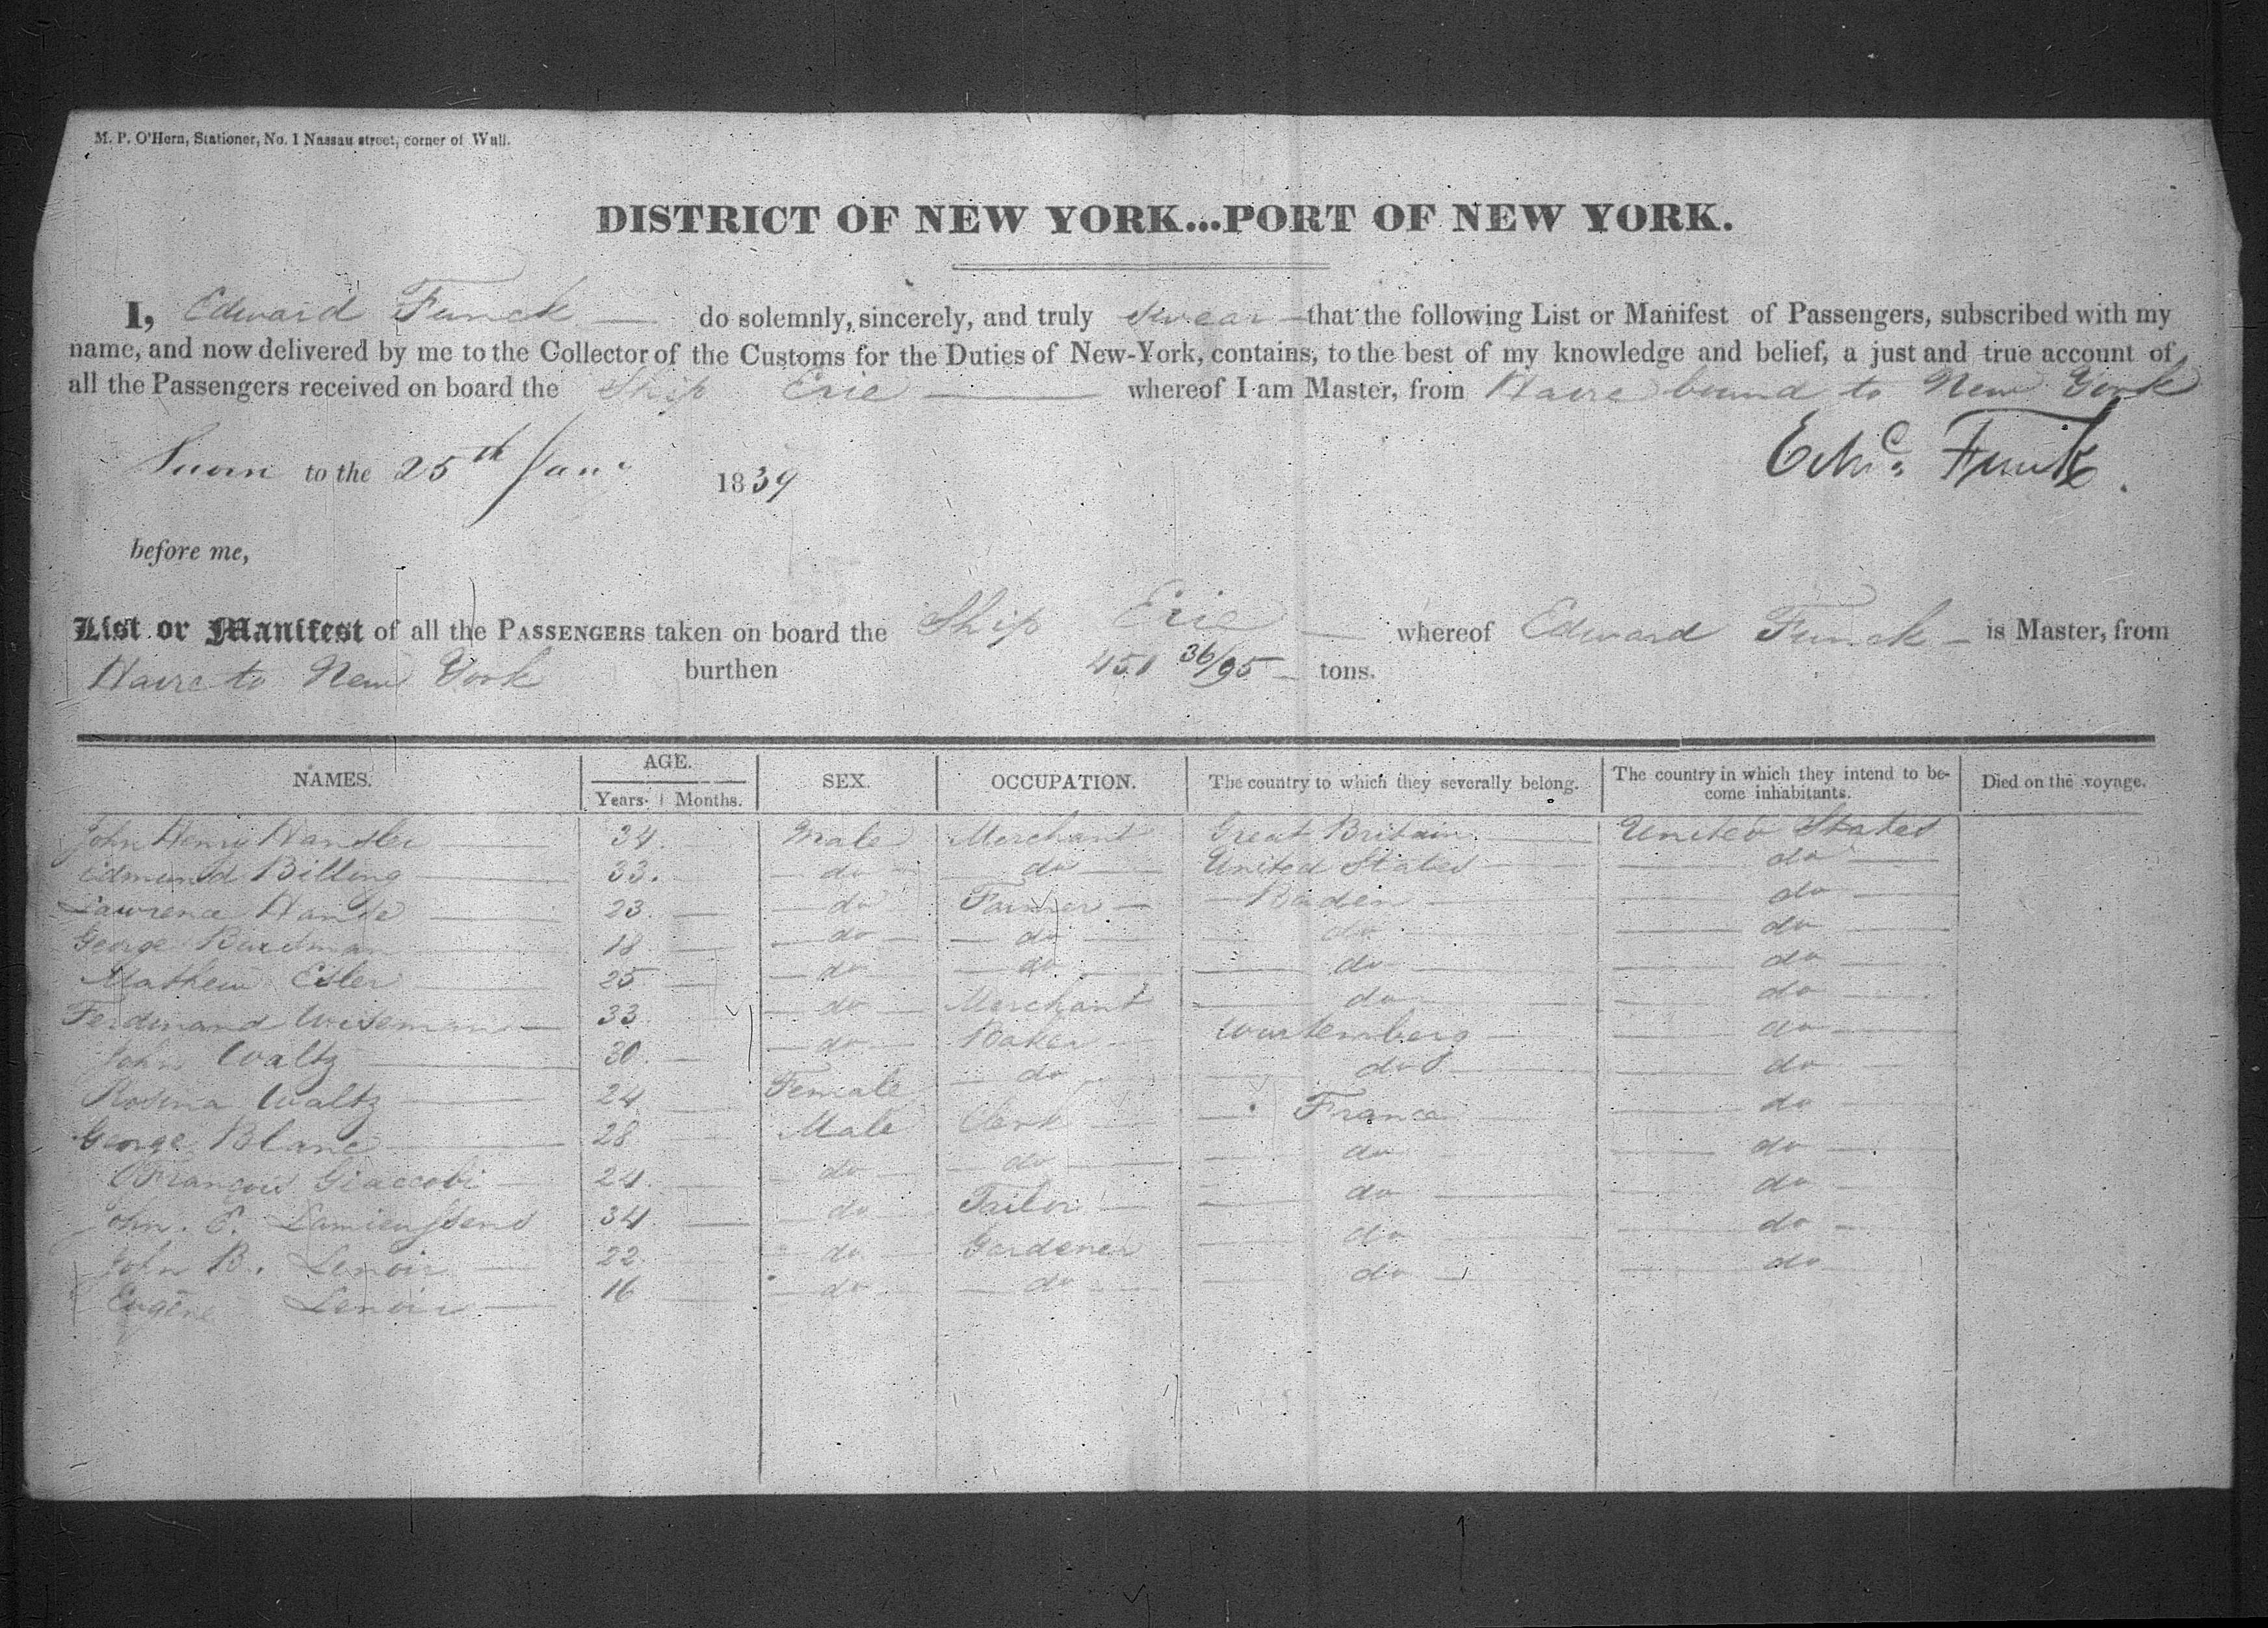 M. P. O'Hern, Stationer, No. 1 Nassau street, corner of Wall.
DISTRICT OF NEW YORK...PORT OF NEW YORK.
I, Edward Funck — do solemnly, sincerely, and truly swear — that the following List or Manifest of Passengers, subscribed with my
name, and now delivered by me to the Collector of the Customs for the Duties of New-York, contains, to the best of my knowledge and belief, a just and true account of
all the Passengers received on board the Ship Erie — whereof I am Master, from Havre bound to New York
Sworn to the 25th Jany 1839
Funk
before me,
List or Manifest of all the PASSENGERS taken on board the Ship Erie — whereof Edward Funck — is Master, from
Havre to New York burthen 451 36/95 — tons.
NAMES. AGE. SEX. OCCUPATION. The country to which they severally belong. The country in which they intend to be- Died on the voyage.
Years. Months. come inhabitants.
John Henry 34. Male Merchant Great Britain United States
Edmund Billing 33. do do United States do
Lawrence 23. do Farmer Baden do
George 18 do do do do
Mathew 25 do do do do
Ferdinand Wiseman 33 do Merchant do do
John Waltz 30. do Baker Wurtemberg do
Rosina Waltz 24 Female do do do
George Blanc 28 Male Clerk France do
Giaccobi 24. do do do do
John. E. 34. do Tailor do do
John B. Lenoir 22. do Gardener do do
Eugène Lenoir 16 do do do do